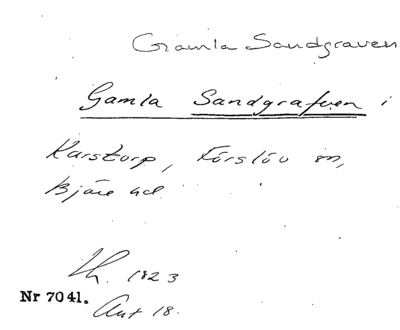 Gamla Sandgraven
Gamla Sandgrafven i
Karstorp, Förslöv sn,
Bjäre hd
Lh. 1823
Nr 7041.
Akt 18.